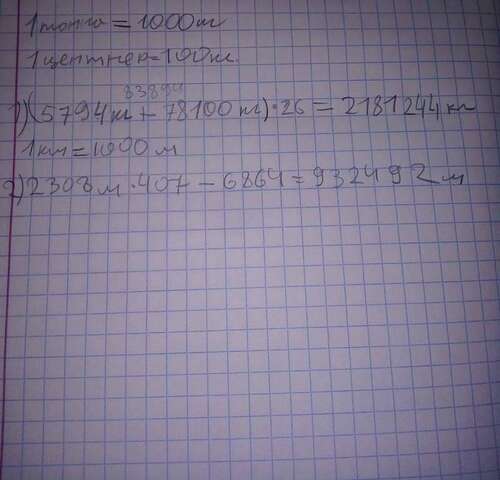 1 тонна = 1000 кг
1 центнер = 100 кг
83894
1) (5794 кг + 78100 кг) · 26 = 2181244 кг
1 км = 1000 м
2) 2308 м · 407 - 6864 = 932492 м